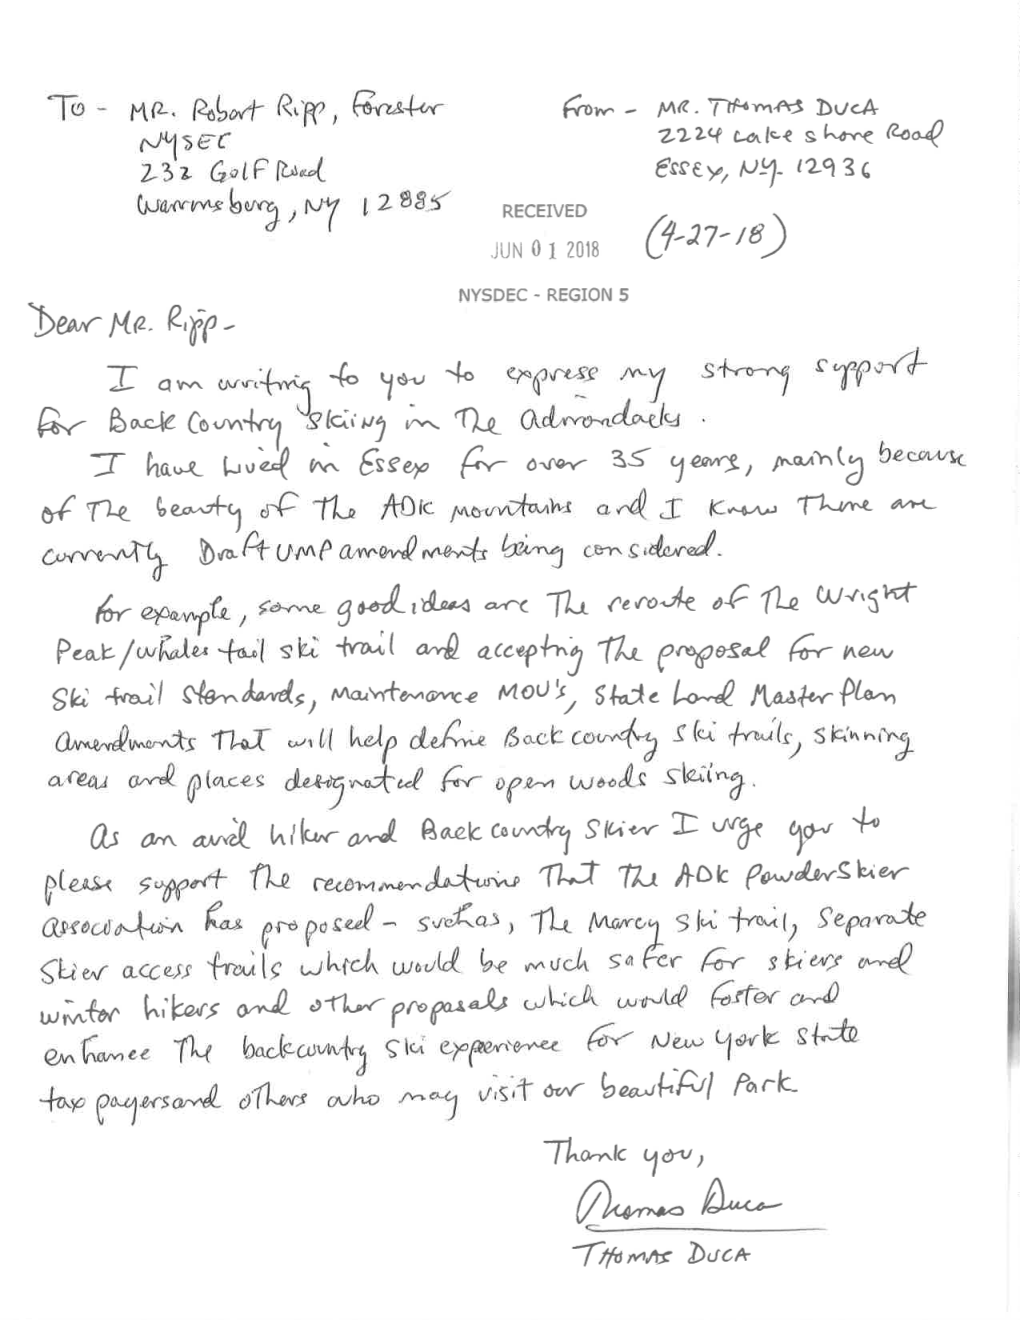 To - MR. Robert Ripp, Forester
NYSEC
232 Golf Road
Warrensburg, NY 12885
From - MR. THOMAS DUCA
2224 Lake Shore Road
Essex, NY. 12936
(4-27-18)
RECEIVED
JUN 01 2018
NYSDEC - REGION 5
Dear MR. Ripp -
I am writing to you to express my strong support
for Back Country Skiing in The Adirondacks.
I have lived in Essex for over 35 years, mainly because
of The beauty of The ADK mountains and I know There are
currently Draft UMP amendments being considered.
for example, some good ideas are The reroute of The Wright
Peak/whales tail ski trail and accepting The proposal for new
Ski trail standards, Maintenance MOU's, State Land Master Plan
Amendments That will help define Back country ski trails, skinning
areas and places designated for open woods skiing.
As an avid hiker and Back country Skier I urge you to
please support The recommendations That The ADK Powder Skier
association has proposed - such as, The Marcy Ski trail, Separate
Skier access trails which would be much safer for skiers and
winter hikers and other proposals which would foster and
enhance The backcountry ski experience for New York State
tax payers and others who may visit our beautiful Park.
Thank you,
Thomas Duca
THOMAS DUCA